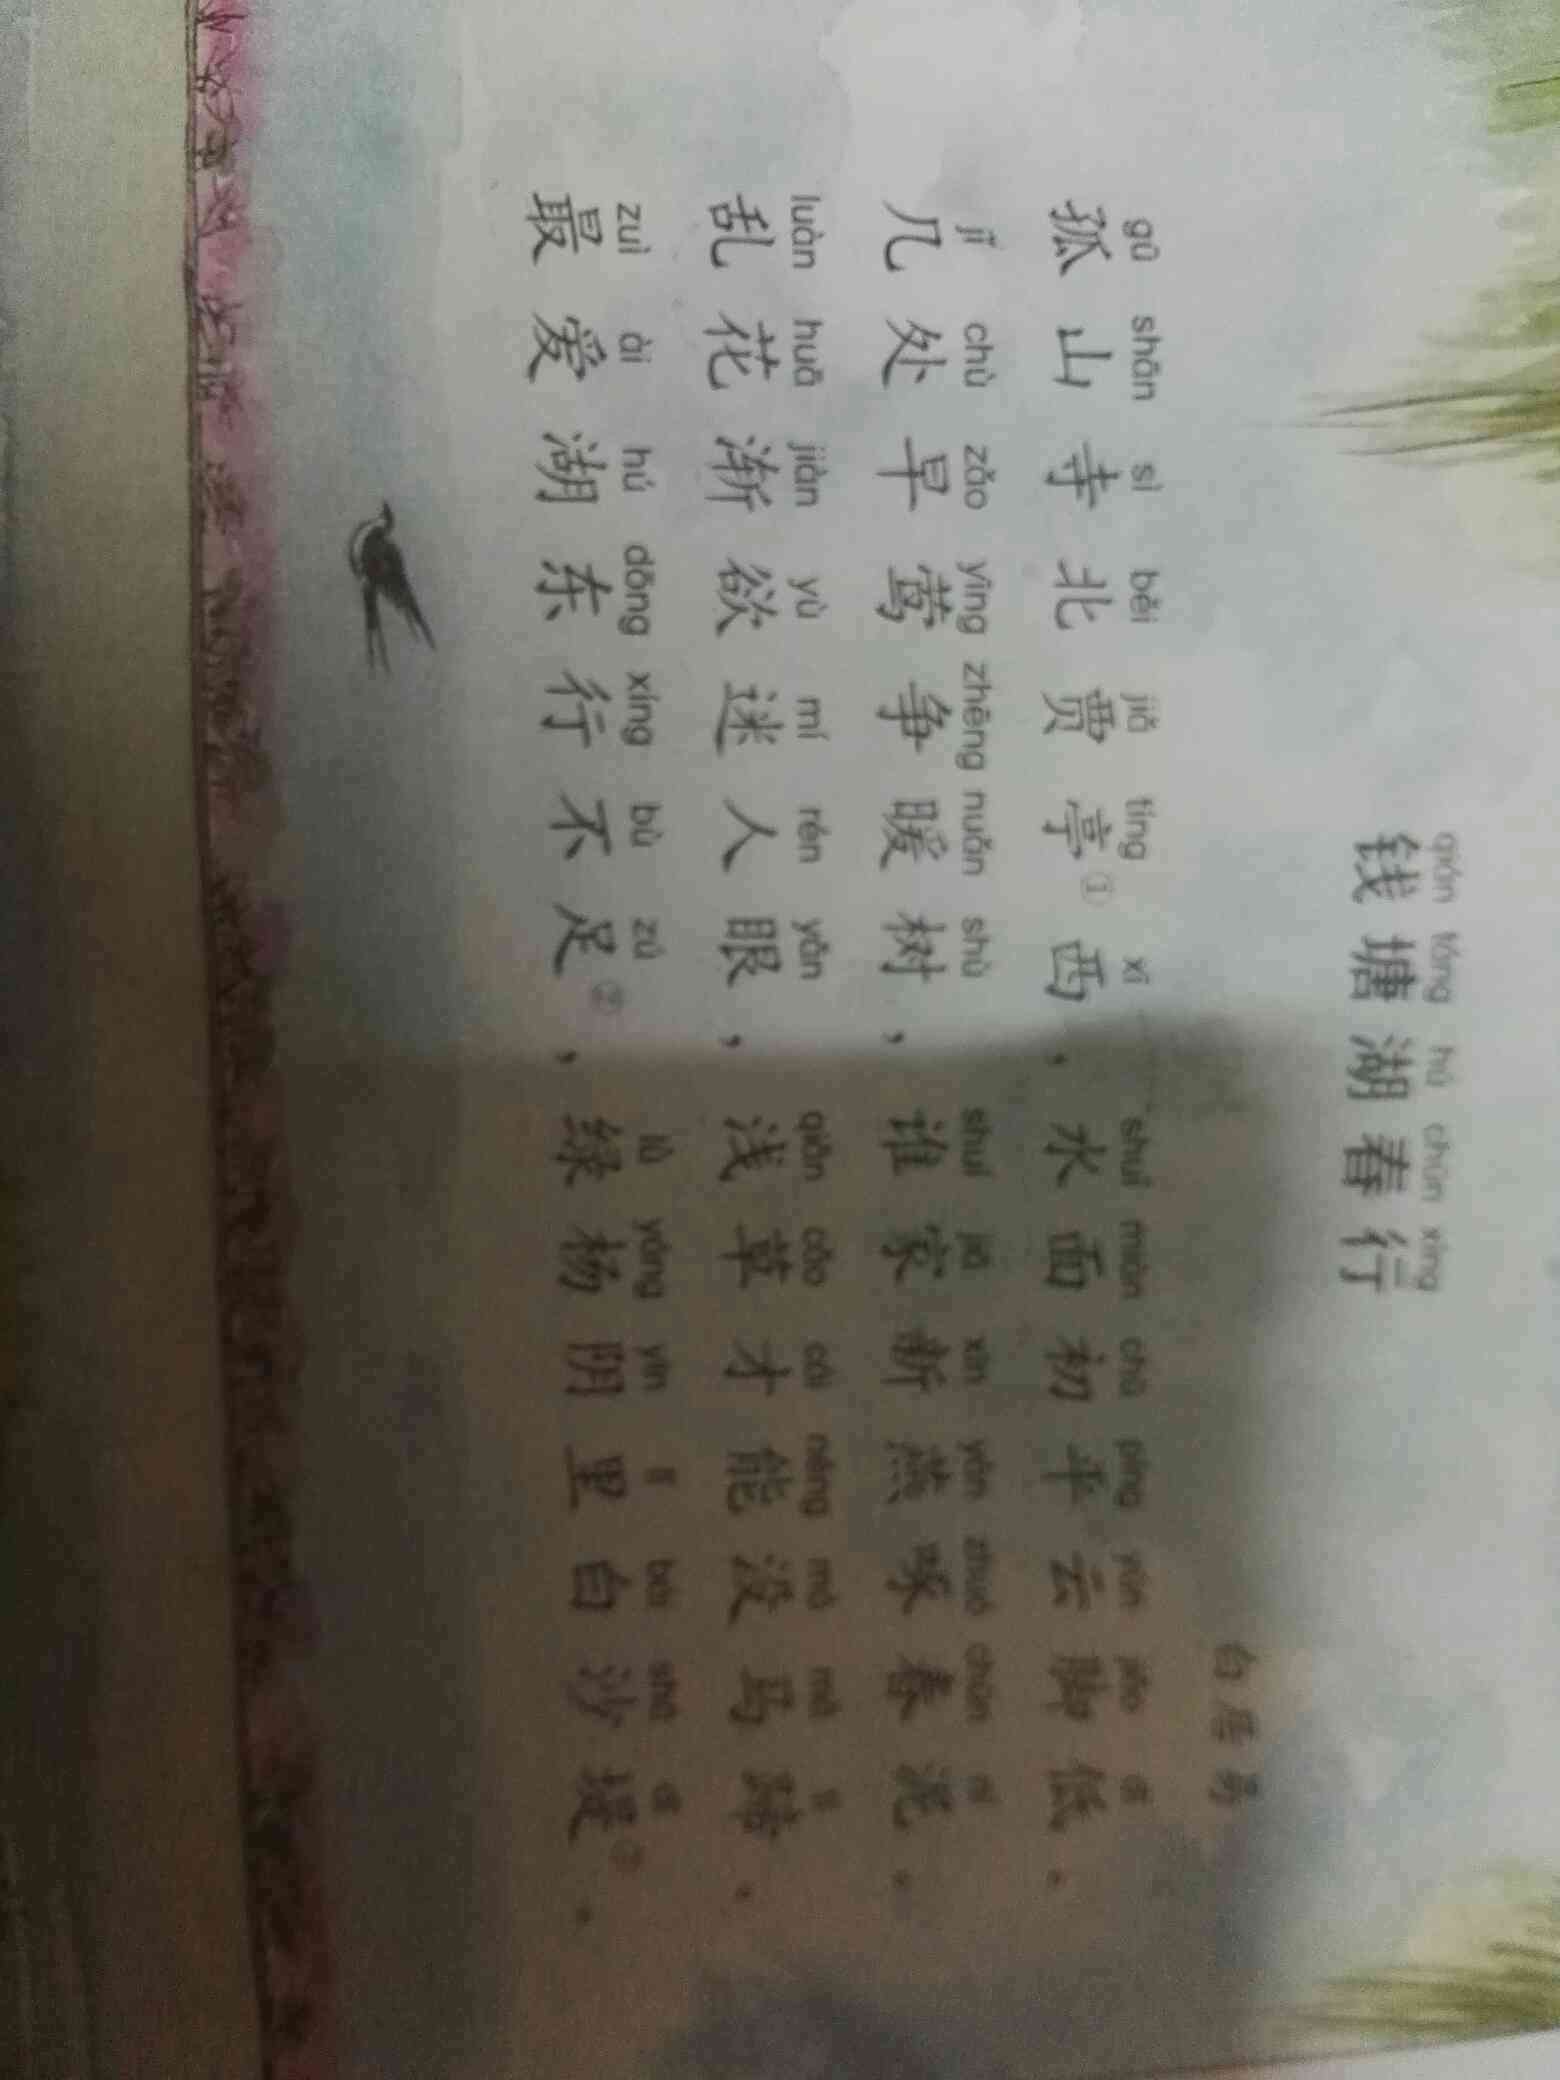 qián táng hú chūn xíng
钱塘湖春行
白居易
gū shān sì běi jiǎ tíng xī shuǐ miàn chū píng yún jiǎo dī
孤山寺北贾亭①西，水面初平云脚低。
jǐ chù zǎo yīng zhēng nuǎn shù shuí jiā xīn yàn zhuó chūn ní
几处早莺争暖树，谁家新燕啄春泥。
luàn huā jiàn yù mí rén yǎn qiǎn cǎo cái néng mò mǎ tí
乱花渐欲迷人眼，浅草才能没马蹄。
zuì ài hú dōng xíng bù zú lǜ yáng yīn lǐ bái shā dī
最爱湖东行不足②，绿杨阴里白沙堤③。